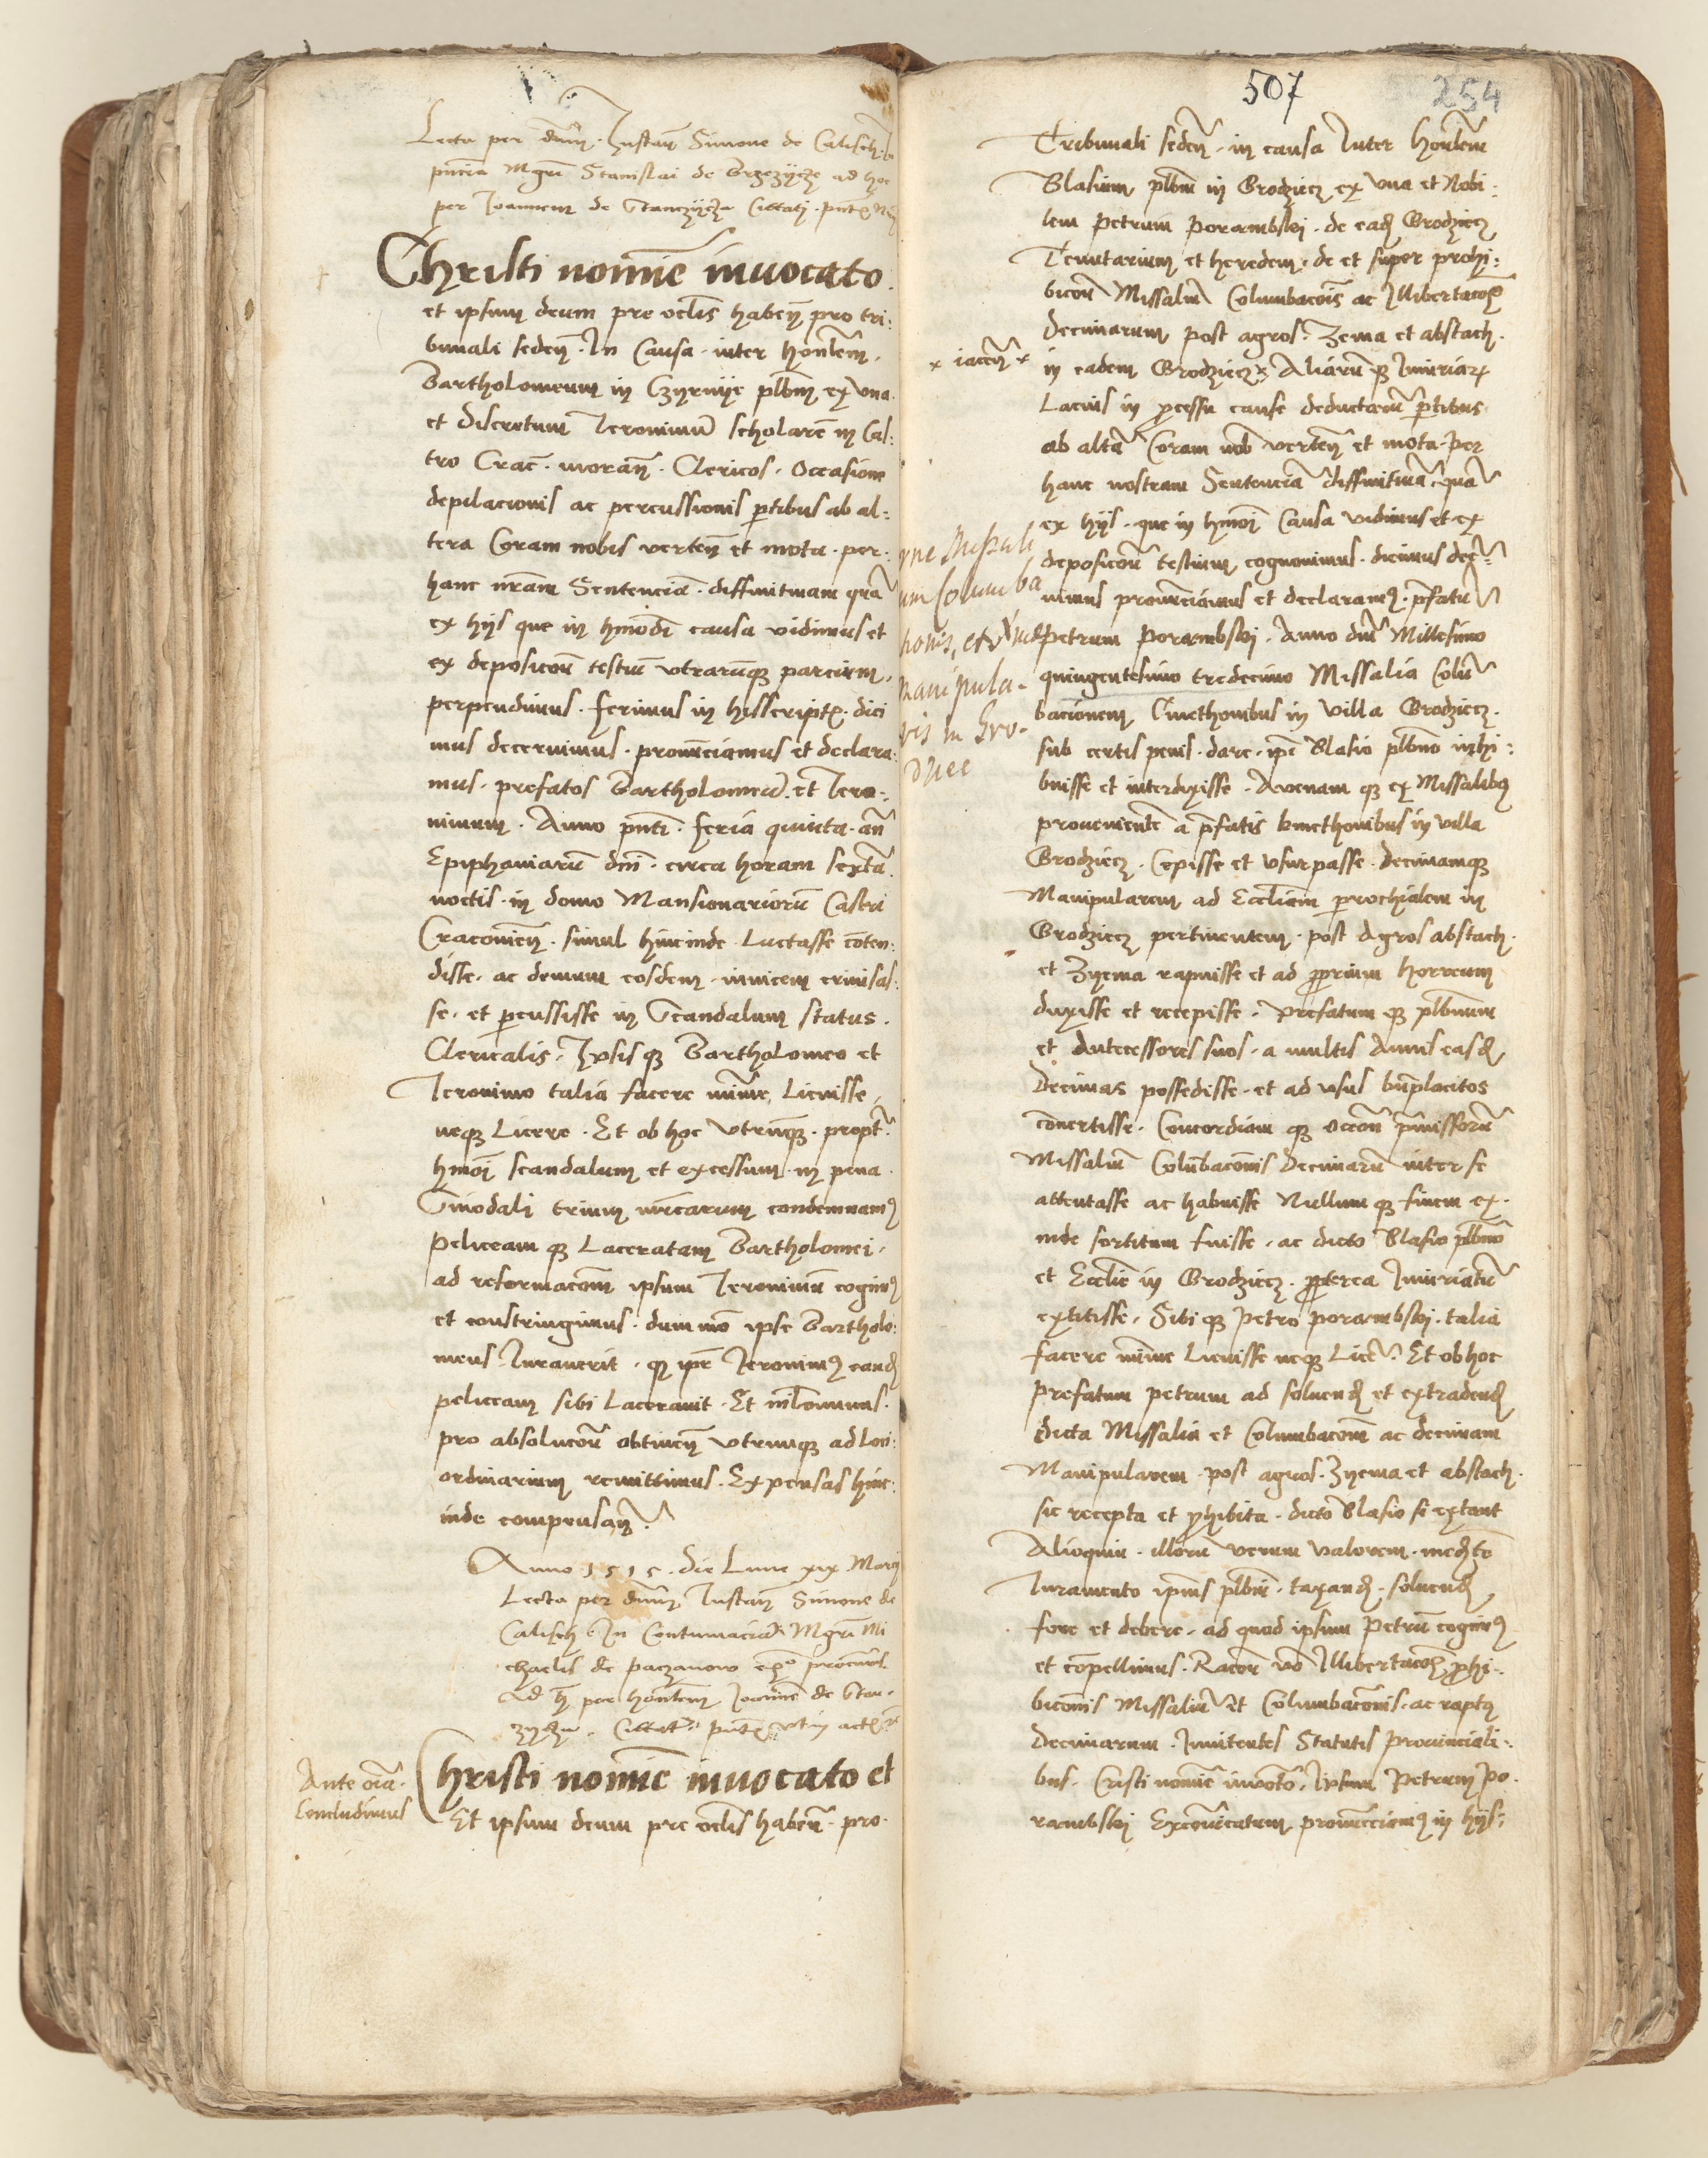 Lecta per dnm Instan Simone de Calisch
pncia Mgri Stanislai de Brzezijcze ad hoc
per Joannem de Stanczijcza Cittatj pnt
Christi nomie inuocato.
et ipsum deum pre oclis haben pro tri:
bunali seden. In Causa inter honlem.
Bartholomeum in Czyrnije plbm ex vna
et discretum Jeronimu scholare in Cas:
tro Crac. moran. Clericos. Occasione
depilacionis ac percussionis ptibus ab al:
tera Coram nobis verten et mota. per.
hanc nram Sentencia. diffinitiuam qua
ex hijs que in hmodi causa vidimus et
ex deposicou testiu vtrarumq parcium,
perpendimus. ferimus in hijs script. dici
mus decernimus. pronunciamus et declara
mus. prefatos Bartholomeu. et Jero:
nimum. Anno pnti. feria quinta. an
Epiphaniaru dni. circa horam sexta.
noctis. in domo Mansionarioru Castri
Cracouien. simul hincinde Luctasse coten:
disse. ac demum eosdem. inuicem crinisas:
se. et pcussisse in Scandalum status.
Clericalis. Ipsis q Bartholomeo et
Jeronimo talia facere minime Licuisse,
neq Licere. Et ob hoc vtrunq. propt.
hmoi scandalum et excessum. in pena.
Sinodali trium mrcarum condemnam9
peliceam q Laceratam Bartholomei,
ad reformacom ipsum Jeronimu cogim9
et constringimus. dummo ipse Bartholo:
meus Jurauerit. q ipe Jeronim9 eand
peliceam sibi Lacerauit. Et nilominus.
pro absolucou obtinen vtrunq ad Loci:
ordinarium remittimus. Expensas hinc:
inde compensan.
Anno 1515. die Lune xix Marcij
Lecta per dnm Instan Simone de
Calisch In Contumacia Mgri Mi
chaelis de paczanow exo procuris
Ad h per honlem Joanne de Stan.
zijcza. Cittat. pnt vt in act
Ante oia.
Concludimus
Christi nomie inuocato et
Et ipsum deum pre oclis haben. pro.
507
254
Tribunali seden. in causa Inter honlem
Blasium plbm in Grodziecz ex vna et Nobi:
lem petrum porambskj. de ead Grodziecz
Tenutarium et heredem. de et super prohi:
bicou Missaliu Columbacois ac Illibertaco
decimarum post agros. Zema et abstach.
x iacen x
in eadem Grodziecz x Aliaru q Iniuriar
Lacius in pcessu cause deductaru ptibus
ab alta Coram nob verten et mota. per
hanc nostram Sentencia diffinitiua. qua
ex hijs. que in hmoi Causa vidimus et ex
deposicou testium cognouimus. dicimus decr
nimus pronunciamus et declaram9. pfatu
Petrum Porambskj. Anno dni Millesimo
quingentesimo tredecimo Missalia Colu
bacionem Cmethonibus in villa Grodziecz.
sub certis penis. dare. ipi Blasio plbno inhi:
buisse et interdixisse. Auenam q ex Missalib9
prouenientem a pfatis kmethonibus in villa
Grodziecz. Cepisse et vsurpasse. decimamq
Manipularem ad Eccliam parochialem in
Grodziecz pertinentem. post Agros abstach.
et Zijema rapuisse et ad pprium horreum
duxisse et recepisse. prefatum q plbnum
et Antecessores suos. a multis Annis easd
decimas possedisse. et ad vsus bnplacitos
conertisse. Concordiam q occon pmissoru
Missaliu Colubacois decimaru inter se
attentasse ac habuisse Nullum q finem ex.
inde sortitum fuisse. ac dicto Blasio plbno
et Ecclie in Grodziecz. ppterea Iniuriatu
extitisse. Sibi q Petro porambskj. talia
facere minime Licuisse neq Lice. Et ob hoc
prefatum petrum ad soluend et extradend
dicta Missalia et Columbacom ac decimam
Manipularem. post agros. Zijema et abstach.
sic recepta et phibita. dicto Blasio si extant
Alioquin. illoru verum valorem. medte
Iuramento ipius plbni. taxand. soluend
fore et debere. ad quod ipsum Petru cogim9
et copellimus. Racou vo Illibertaco phi:
bicois Missaliu et Columbacois. ac rapt9
decimarum. Innitentes Statutis prouinciali:
bus. Cristi nomie inuocto. Ipsum Petrum Po.
rambskj Excoicatum pronuncciam9 in hijs: